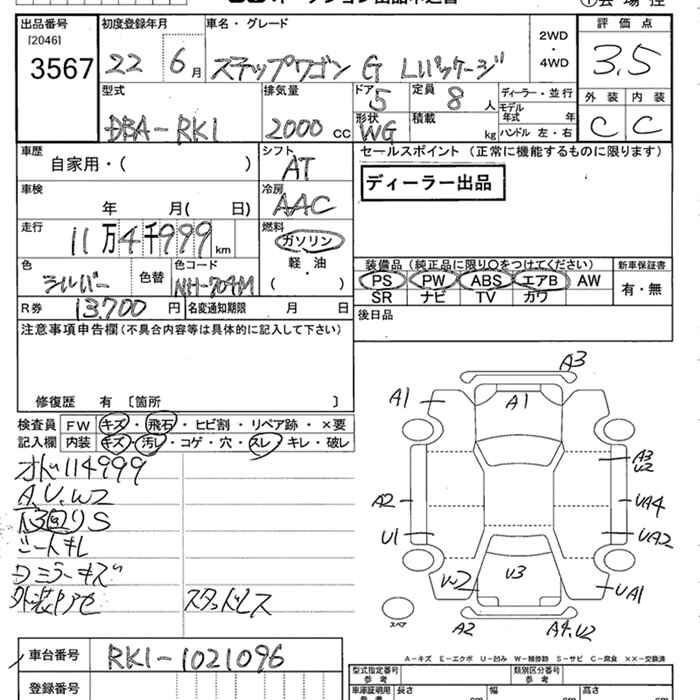 出品番号 初度登録年月 車名・グレード 評価点
[2046]
3567 22 6月 ステップワゴン G Lパッケージ 2WD・4WD 3.5
外装 内装
C C
型式 排気量 ドア 定員 ディーラー・並行
DBA-RK1 2000cc 5 8人 モデル年式 年
形状 積載 ハンドル 左・右
WG kg
車歴 シフト セールスポイント (正常に機能するものに限ります)
自家用・( ) AT ディーラー出品
車検 冷房
年 月( 日) AAC
走行 燃料
11万4千999km ガソリン
軽・油
( )
色 色替 色コード 装備品 (純正品に限り○をつけてください) 新車保証書
シルバー NH-704M PS PW ABS エアB AW 有・無
SR ナビ TV カワ
R券 13,700円 名変通知期限 月 日 後日品
注意事項申告欄(不具合内容等は具体的に記入して下さい)
修復歴 有 〔箇所 〕
検査員 FW キズ・飛石・ヒビ割・リペア跡・×要
記入欄 内装 キズ・汚レ・コゲ・穴・スレ・キレ・破レ
オド114999
A.U.W2
下回りS
シートキレ
ミラーキズ
スタッドレス
A3
A1 A1
A3
U2
A2 UA4
U1 UA2
W2 U3 UA1
スペア
A2 A4.U2
A-キズ E-エクボ U-凹み W-補修跡 S-サビ C-腐食 ××-交換済
車台番号 RK1-1021096
型式指定番号 類別区分番号
参考 参考
登録番号 車庫証明用 長さ 幅 高さ
参考 cm cm cm